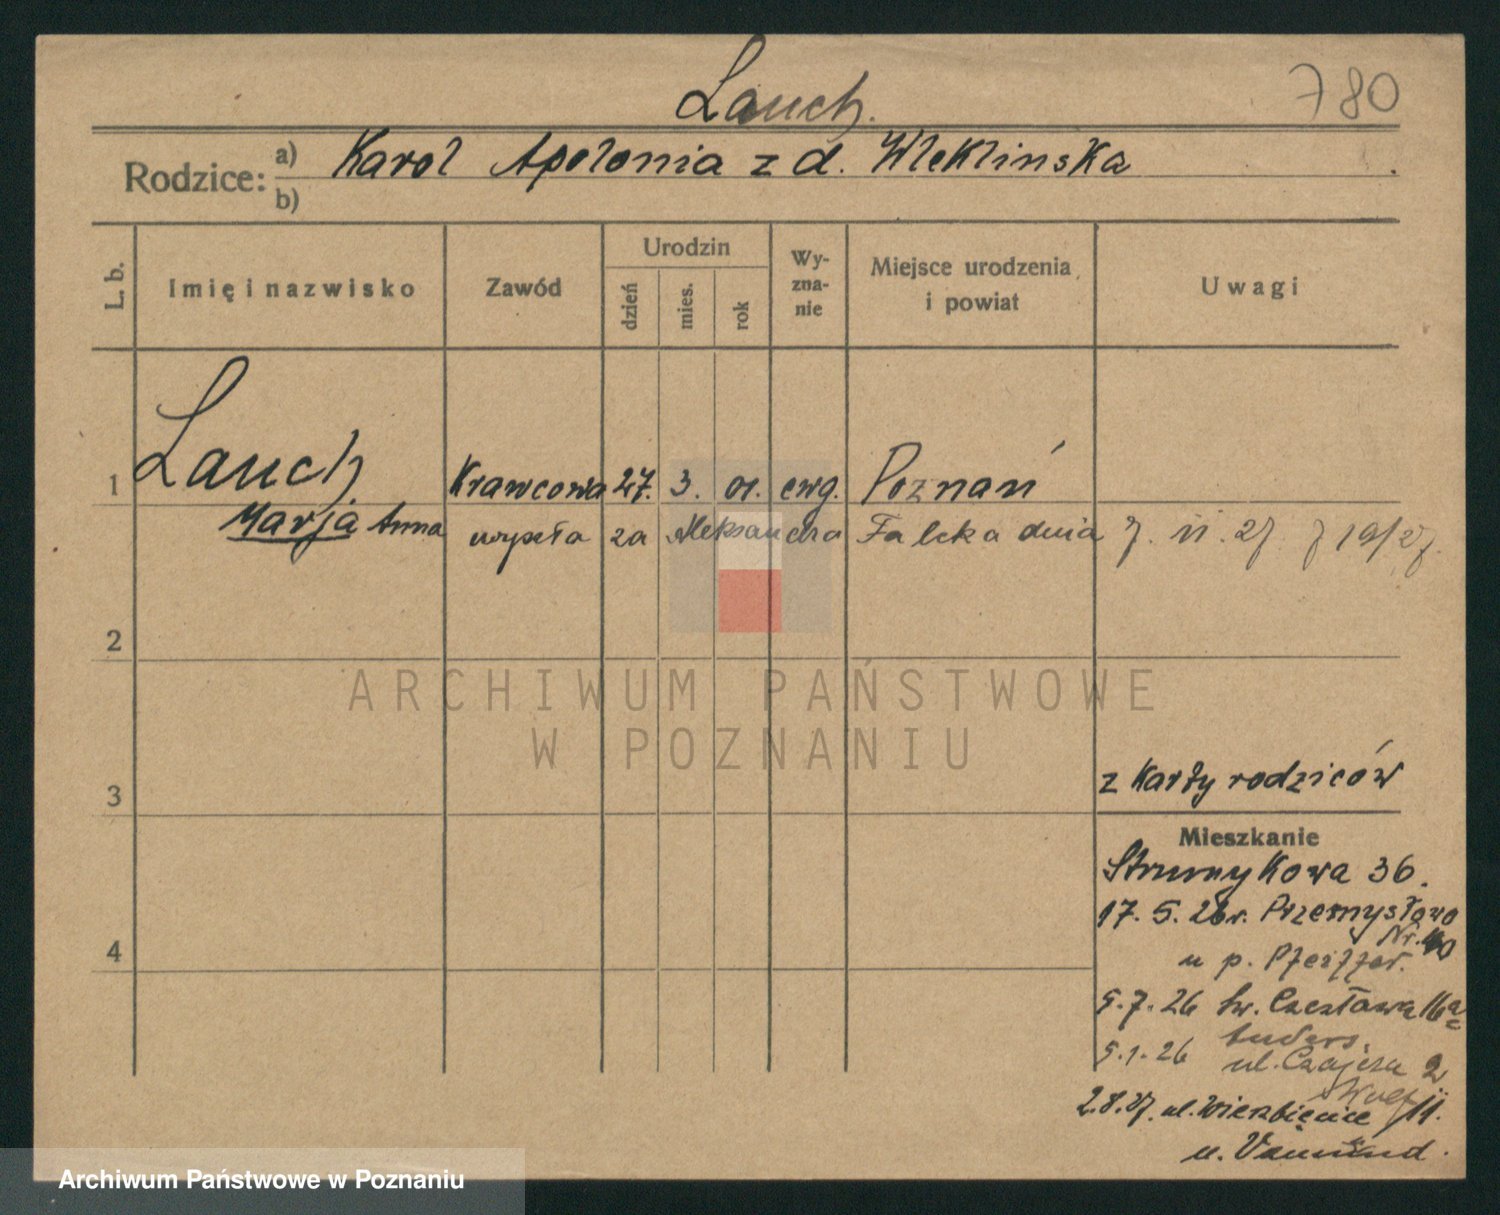 Lauch.
780
Rodzice: a) Karol Apolonia z d. Wleklinska
b)
L. b.
Imię i nazwisko
Zawód
Urodzin
dzień
mies.
rok
Wy-
zna-
nie
Miejsce urodzenia
i powiat
Uwagi
1
Lauch
Krawcowa 27. 3. 01. ewg. Poznań
Marja Anna
wyszła za Aleksandra Falcka dnia 7. 11. 27.
2
ARCHIWUM PAŃSTWOWE
W POZNANIU
3
z Karty rodziców
Mieszkanie
Strumykowa 36.
17. 5. 26r. Przemysłowa
Nr.
4
u p. Pfeiffer.
5.7.26 św. Czesława 16a
5.1.26 ul. Czajcza 2
2.8.27. ul. Wierzbięcice 11.
u.
Archiwum Państwowe w Poznaniu